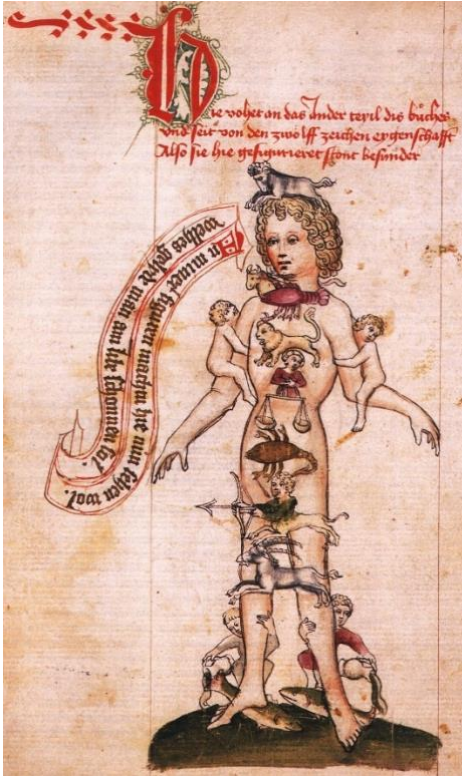 Hie vohet an das Ander teyil dis bůches
Vnd seit von den zwölff zeichen eygenschafft
Also sie hie gefigurieret stont besunder
An miner figuren machtu hie nün sehen wol.
welhes gelyde man am libe schonnen sol.